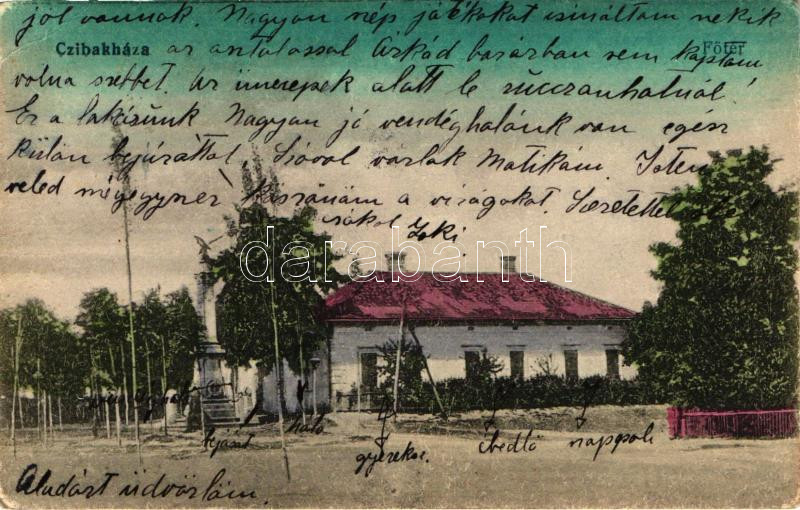 jól vannak. Nagyon nép játékokat csináltam nekik
Czibakháza az asztalossal Árkád bazárban sem kaptam
Főtér
volna szebbet. Az ünnepek alatt le
Ez a lakásunk Nagyon jó vendéghalónk van egész
külön bejárattal. Szóval varlak Matikám. Isten
veled mégegyszer köszönöm a virágokat. Szeretettel
csókol Jeki
darabanth
bejárat
háló
gyereksz.
ebedlő
nappali
Aladárt üdvözlöm.